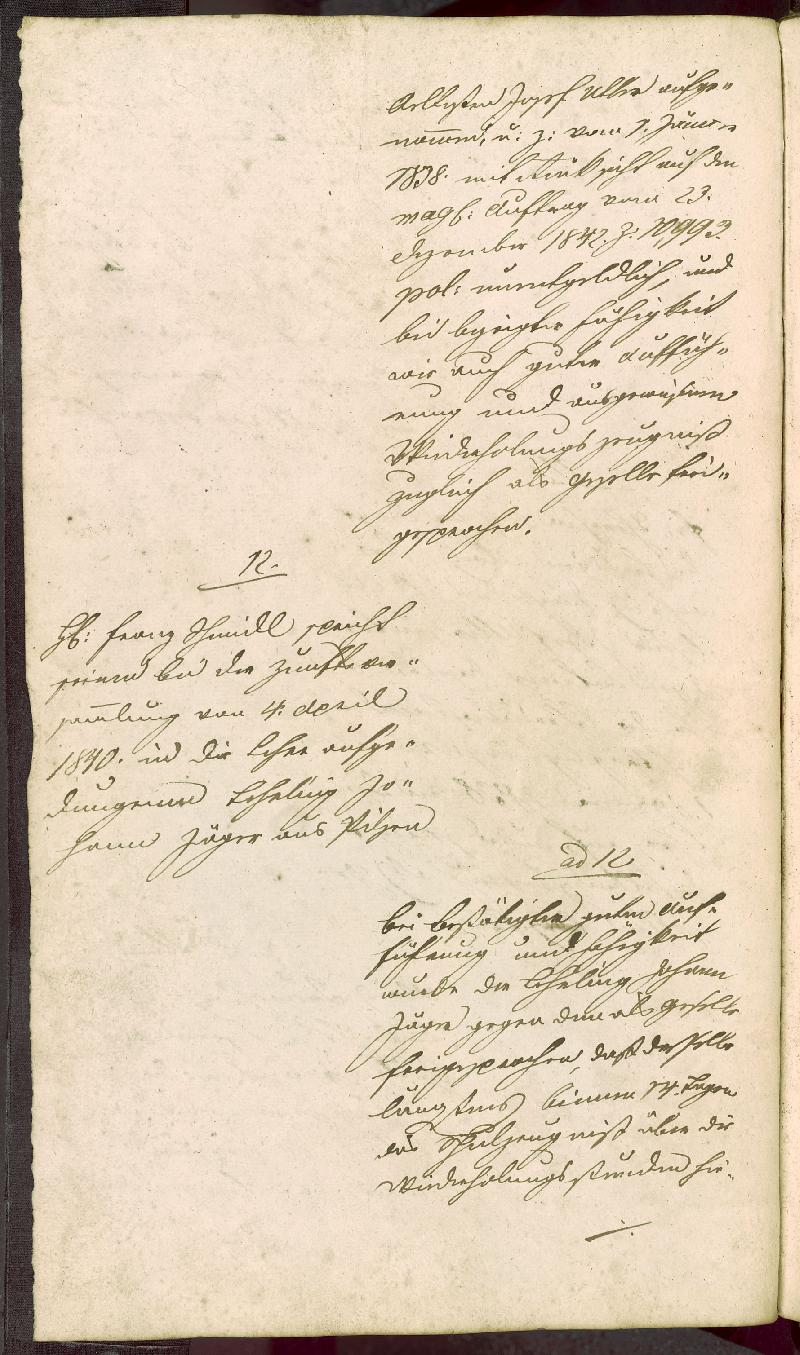 Aeltesten Josef Uller aufge„
nom̅en, u: z: vom 7. Jänner
1838. mit Rücksicht auf den
mag: Auftrag vom 23.
Dezember 1842. Z: 10,993
pol: unentgeldlich, und
bei bezeigter Fähigkeit
wie auch guter Auffüh„
rung und ausgewiesenem
Wiederholungszeugniß
zugleich als Geselle frei„
gesprochen.
12.
H: Franz Schmidl spricht
seinen bei der Zunftver„
sammlung vom 4. April
1840. in die Lehre aufge„
dungenen Lehrling Jo„
hann Jäger aus Pilsen
ad 12
bei bestätigter guten Auf„
führung und Fähigkeit
wurde der Lehrling Johann
Jäger gegen dem als Geselle
freigesprochen, daß derselbe
längstens binnen 14 Tagen
das Schulzeugniß über die
Wiederholungsstunden hie„